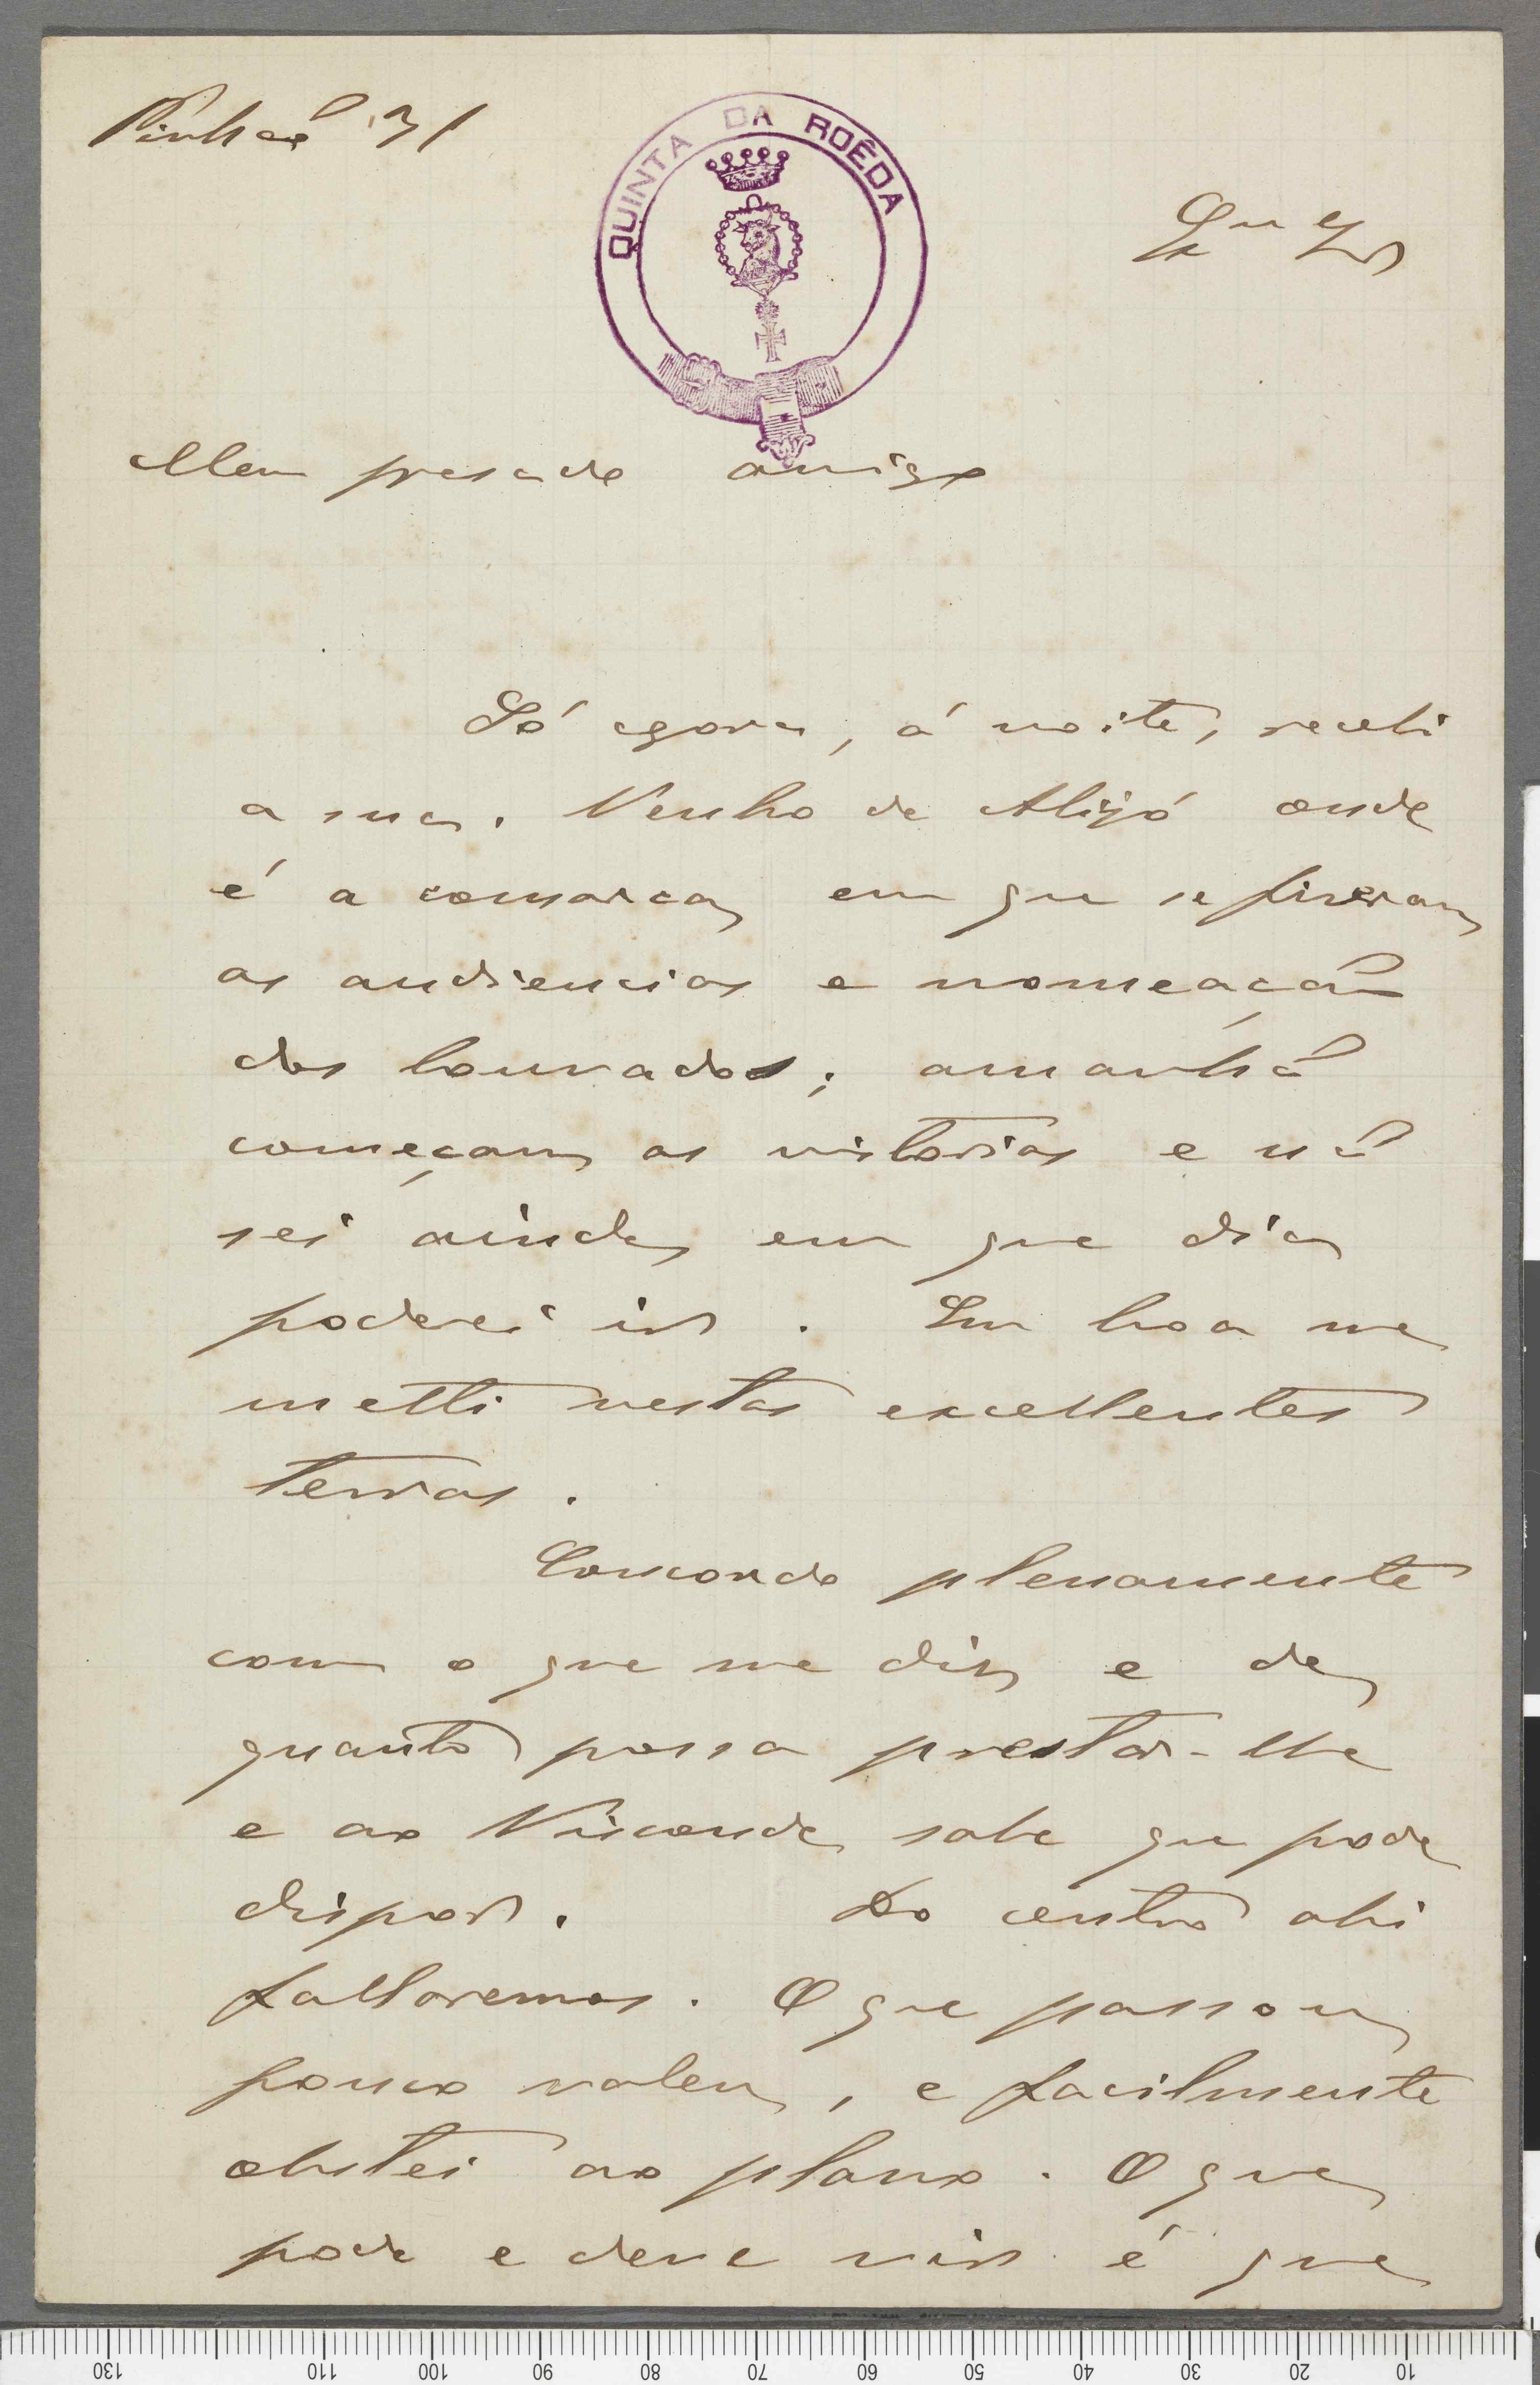 Pinhão 31
QUINTA DA ROÊDA
Meu presado amigo
Só agora, á noite, recebi
a sua. Venho de Alijó onde
é a comarca em que se fizeram
as audiencias e nomeação
dos louvados; amanhã
começam as vistorias e nã
sei ainda em que dia
poderei ir. Em boa me
metti nestas excellentes
terras.
Concordo plenamente
com o que me diz e de
quanto possa prestar-lhe
e ao Visconde sabe que pode
dispor. Do centro ahi
fallaremos. O que passou
pouco valeu, e facilmente
obstei ao plano. O que
pode e deve vir é que
130 110 100 90 80 70 60 50 40 30 20 10